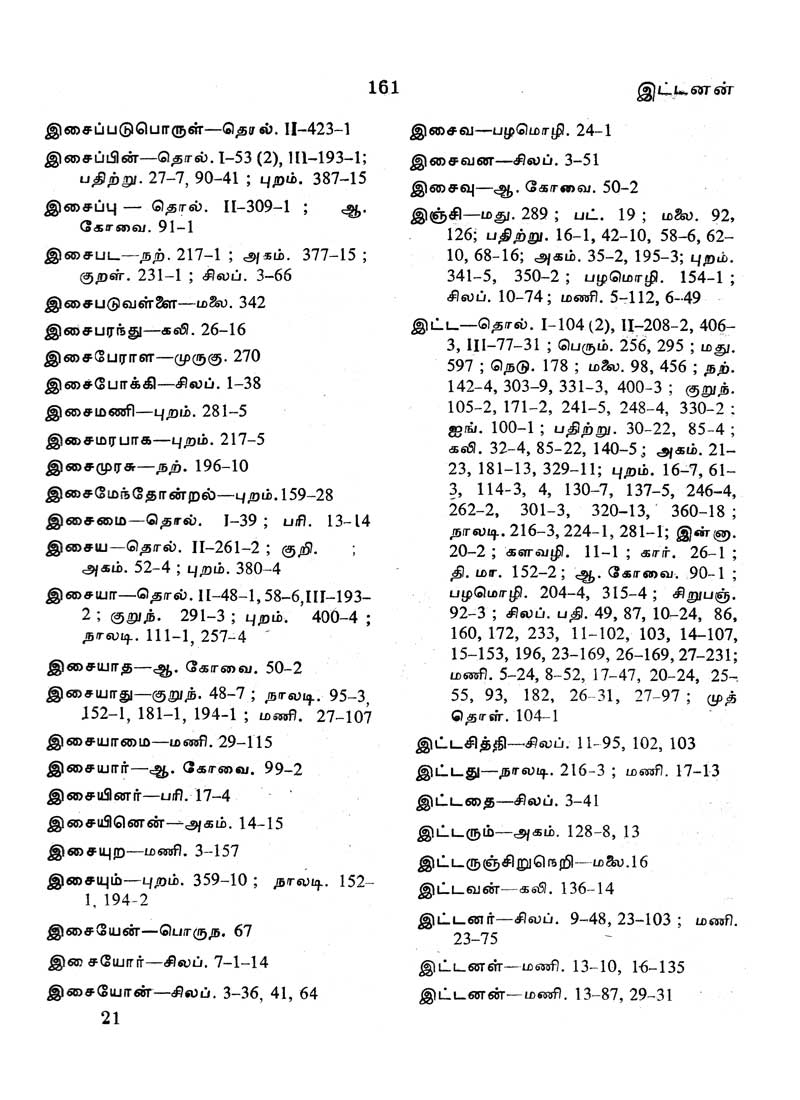 161
இட்டனன்
இசைப்படுபொருள்—தொல். II–423–1
இசைப்பின்—தொல். I–53 (2), III–193–1;
பதிற்று. 27–7, 90–41 ; புறம். 387–15
இசைப்பு — தொல். II–309–1 ; ஆ.
கோவை. 91–1
இசைபட—நற். 217–1 ; அகம். 377–15 ;
குறள். 231–1 ; சிலப். 3–66
இசைபடுவள்ளை—மலை. 342
இசைபரந்து—கலி. 26–16
இசைபேராள—முருகு. 270
இசைபோக்கி—சிலப். 1–38
இசைமணி—புறம். 281–5
இசைமரபாக—புறம். 217–5
இசைமுரசு—நற். 196–10
இசைமேந்தோன்றல்—புறம்.159–28
இசைமை—தொல். I–39 ; பரி. 13–14
இசைய—தொல். II–261–2 ; குறி. ;
அகம். 52–4 ; புறம். 380–4
இசையா—தொல். II–48–1, 58–6,III–193–
2 ; குறுந். 291–3 ; புறம். 400–4 ;
நாலடி. 111–1, 257–4
இசையாத—ஆ. கோவை. 50–2
இசையாது—குறுந். 48–7 ; நாலடி. 95–3,
152–1, 181–1, 194–1 ; மணி. 27–107
இசையாமை—மணி. 29–115
இசையார்—ஆ. கோவை. 99–2
இசையினர்—பரி. 17–4
இசையினென்—அகம். 14–15
இசையுற—மணி. 3–157
இசையும்—புறம். 359–10 ; நாலடி. 152–
1, 194–2
இசையேன்—பொருந. 67
இசையோர்—சிலப். 7–1–14
இசையோன்—சிலப். 3–36, 41, 64
இசைவ—பழமொழி. 24–1
இசைவன—சிலப். 3–51
இசைவு—ஆ. கோவை. 50–2
இஞ்சி—மது. 289 ; பட். 19 ; மலை. 92,
126; பதிற்று. 16–1, 42–10, 58–6, 62–
10, 68–16; அகம். 35–2, 195–3; புறம்.
341–5, 350–2 ; பழமொழி. 154–1 ;
சிலப். 10–74 ; மணி. 5–112, 6–49
இட்ட—தொல். I–104 (2), II–208–2, 406–
3, III–77–31 ; பெரும். 256, 295 ; மது.
597 ; நெடு. 178 ; மலை. 98, 456 ; நற்.
142–4, 303–9, 331–3, 400–3 ; குறுந்.
105–2, 171–2, 241–5, 248–4, 330–2 :
ஐங். 100–1 ; பதிற்று. 30–22, 85–4 ;
கலி. 32–4, 85–22, 140–5 ; அகம். 21–
23, 181–13, 329–11; புறம். 16–7, 61–
3, 114–3, 4, 130–7, 137–5, 246–4,
262–2, 301–3, 320–13, 360–18 ;
நாலடி. 216–3, 224–1, 281–1; இன்னா.
20–2 ; களவழி. 11–1 ; கார். 26–1 ;
தி. மா. 152–2 ; ஆ. கோவை. 90–1 ;
பழமொழி. 204–4, 315–4 ; சிறுபஞ்.
92–3 ; சிலப். பதி. 49, 87, 10–24, 86,
160, 172, 233, 11–102, 103, 14–107,
15–153, 196, 23–169, 26–169, 27–231;
மணி. 5–24, 8–52, 17–47, 20–24, 25–
55, 93, 182, 26–31, 27–97 ; முத்
தொள். 104–1
இட்டசித்தி—சிலப். 11–95, 102, 103
இட்டது—நாலடி. 216–3 ; மணி. 17–13
இட்டதை—சிலப். 3–41
இட்டரும்—அகம். 128–8, 13
இட்டருஞ்சிறுநெறி—மலை.16
இட்டவன்—கலி. 136–14
இட்டனர்—சிலப். 9–48, 23–103 ; மணி.
23–75
இட்டனள்—மணி. 13–10, 16–135
இட்டனன்—மணி. 13–87, 29–31
21